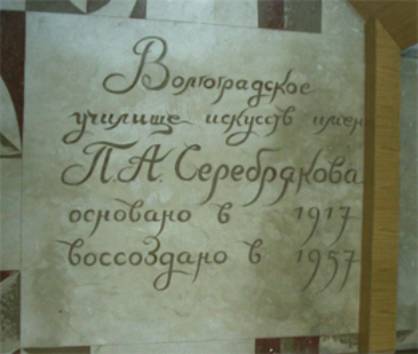 Волгоградское
училище искусств имени
П.А. Серебрякова
основано в 1917
воссоздано в 1957